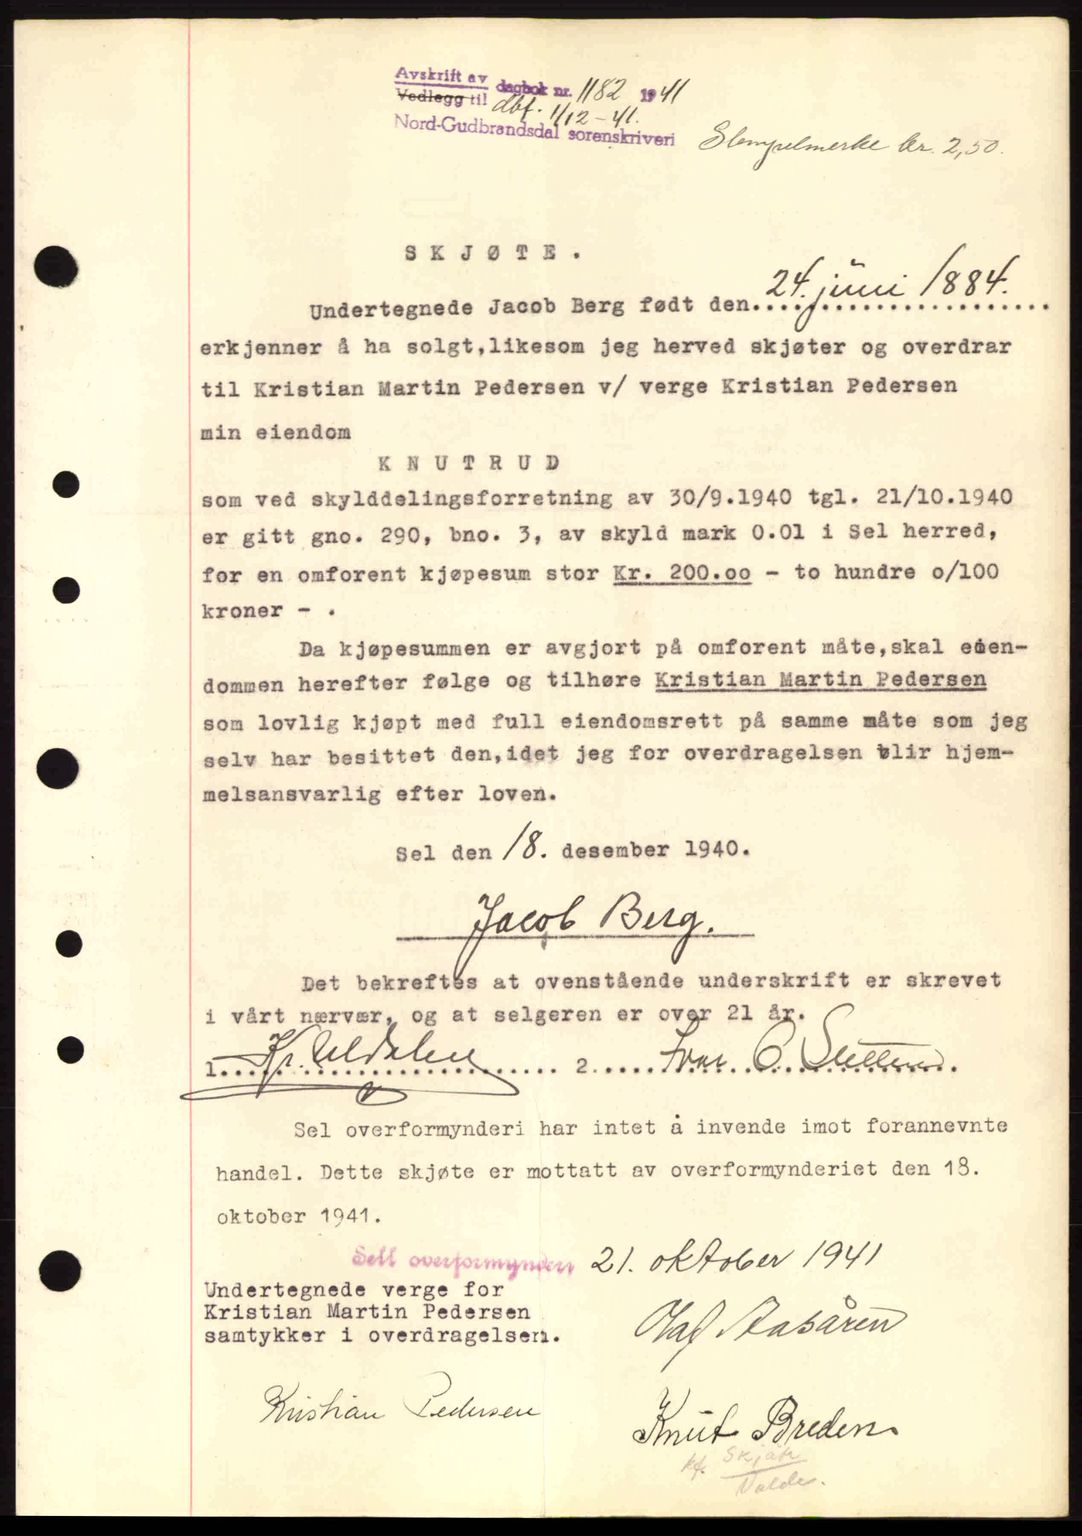 Avskrift av
Vedlegg til dagbok nr. 1182 1941
dbf. 1/12-41.
Nord-Gudbrandsdal sorenskriveri
Stempelmerke kr. 2,50.
S K J Ø T E .
Undertegnede Jacob Berg født den..24. juni 1884.
erkjenner å ha solgt,likesom jeg herved skjøter og overdrar
til Kristian Martin Pedersen v/ verge Kristian Pedersen
min eiendom
K N U T R U D
som ved skylddelingsforretning av 30/9.1940 tgl. 21/10.1940
er gitt gno. 290, bno. 3, av skyld mark 0.01 i Sel herred,
for en omforent kjøpesum stor Kr. 200.oo - to hundre o/100
kroner - .
Da kjøpesummen er avgjort på omforent måte,skal eien-
dommen herefter følge og tilhøre Kristian Martin Pedersen
som lovlig kjøpt med full eiendomsrett på samme måte som jeg
selv har besittet den,idet jeg for overdragelsen blir hjem-
melsansvarlig efter loven.
Sel den 18. desember 1940.
Jacob Berg.
Det bekreftes at ovenstående underskrift er skrevet
i vårt nærvær, og at selgeren er over 21 år.
1. Kr. Uldalen 2. Ivar O. Sletten
Sel overformynderi har intet å invende imot forannevnte
handel. Dette skjøte er mottatt av overformynderiet den 18.
oktober 1941.
Sell overformynderi 21. oktober 1941
Undertegnede verge for
Kristian Martin Pedersen
samtykker i overdragelsen.
Olaf Aasåren
Kristian Pedersen
Knut Breden
kf. Skjåk